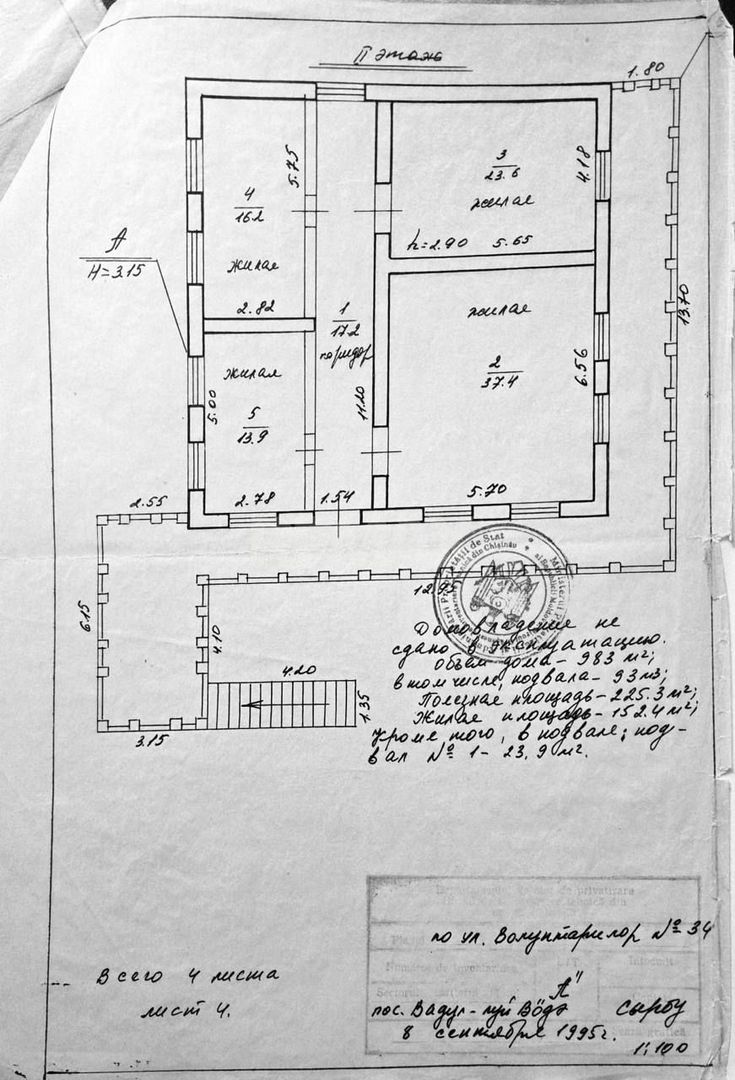 II этажъ
1.80
5.75
3
23.6
жилая
4.18
4
16.2
жилая
h=2.90 5.65
А
H=3.15
2.82
1
17.2
коридор
жилая
2
37.4
6.56
13.70
жилая
5.00
5
13.9
11.20
2.78
1.54
5.70
2.55
12.95
6.15
4.10
4.20
1.35
3.15
Домовладение не
сдано в эксплуатацию.
Объем дома - 983 м²;
в том числе, подвала - 93 м3;
Полезная площадь - 225.3 м²;
Жилая площадь - 152.4 м²;
Кроме того, в подвале; под-
вал № 1 - 23,9 м².
de privatizare
по ул. Волунтарилор № 34
Numărul de inventariere
LIT
Intocmit
Sectorul
"А"
пос. Вадул-луй Водэ
сырбу
8 сентября 1995г.
1:100
Всего 4 листа
лист 4.